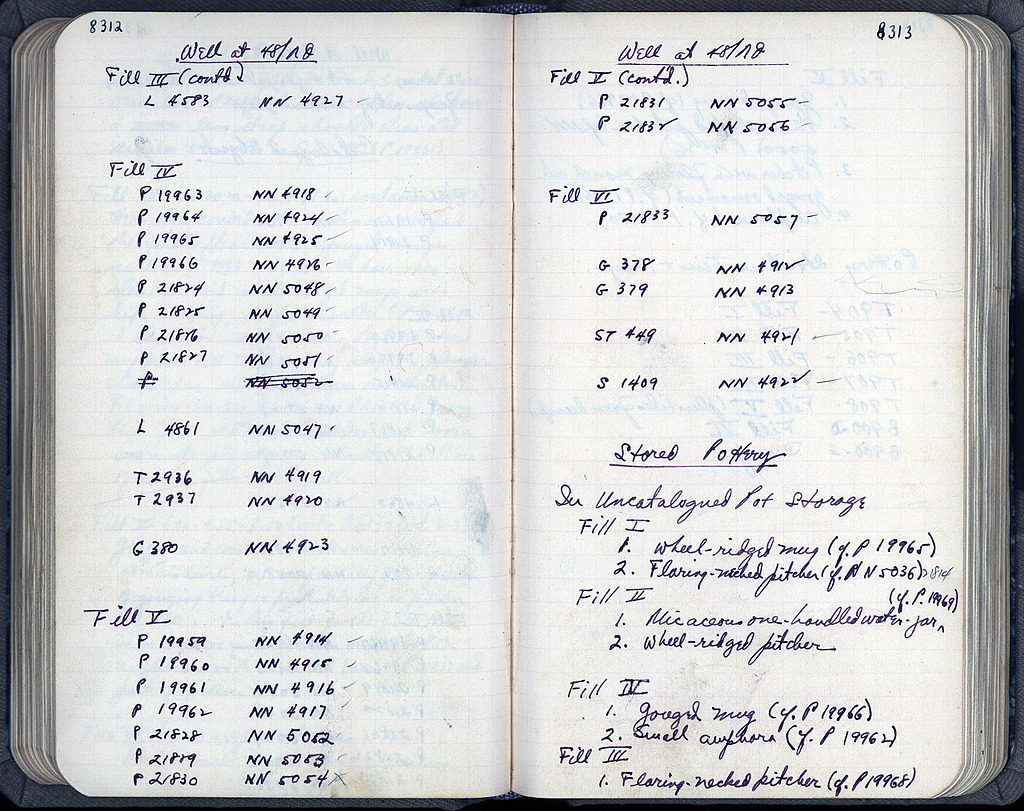 8312
Well at 48/ΛΘ
Fill III (contd)
L 4583 NN 4927 -
Fill IV
P 19963 NN 4918 -
P 19964 NN 4924 -
P 19965 NN 4925 -
P 19966 NN 4926 -
P 21824 NN 5048 -
P 21825 NN 5049 -
P 21826 NN 5050 -
P 21827 NN 5051 -
P NN 5052
L 4861 NN 5047 -
T 2936 NN 4919
T 2937 NN 4920
G 380 NN 4923
Fill V
P 19959 NN 4914 -
P 19960 NN 4915 -
P 19961 NN 4916 -
P 19962 NN 4917 -
P 21828 NN 5052 -
P 21829 NN 5053 -
P 21830 NN 5054 -
8313
Well at 48/ΛΘ
Fill V (cont'd.)
P 21831 NN 5055 -
P 21832 NN 5056 -
Fill VI
P 21833 NN 5057 -
G 378 NN 4912
G 379 NN 4913
ST 449 NN 4921 -
S 1409 NN 4922 -
Stored Pottery
In Uncatalogued Pot Storage
Fill I
1. Wheel-ridged mug (cf. P 19965)
2. Flaring-necked pitcher (cf. NN 5036) 21814
Fill II (cf. P. 19969)
1. Micaceous one-handled water-jar
2. Wheel-ridged pitcher
Fill IV
1. Gouged mug (cf. P 19966)
2. Small amphora (cf. P 19962)
Fill III
1. Flaring-necked pitcher (cf. P 19968)